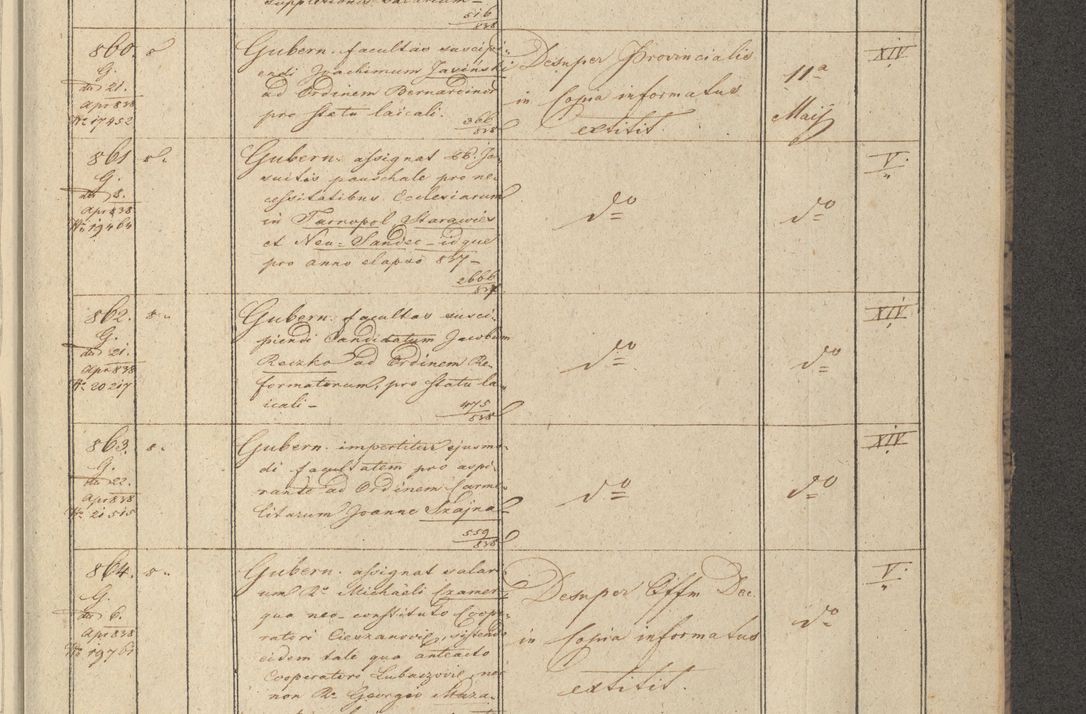 516
838
860.
G.
dto 21.
Apr 838
No 17452
Gubern. facultas suscipi-
endi Joachimum Jasiński
ad Ordinem Bernardinor
pro statu laicali.
366
838
Desuper Provincialis
in Copia informatus
extitit.
11a
Maij
XIV
861
G.
dto 8.
Apr 838
No 19464
Gubern. assignat Je-
suitis pauschale pro ne-
cessitatibus Ecclesiarum
in Tarnopol, Starawies
et Neu-Sandec - idque
pro anno elapso 837 -
2666
837
do
do
V.
862.
G.
dto 21.
Apr 838
No 20217
Gubern. facultas susci-
piendi Candidatum Jacobum
Raczka ad Ordinem Re-
formatorum, pro statu la-
icali -
475
838
do
do
XIV
863.
G.
dto 22.
Apr 838
No 21515
Gubern. impertitur ejusmo-
di facultatem pro aspi-
rante ad Ordinem Carme-
litarum Joanne Szajna
559
838
do
do
XIV
864.
G.
dto 6.
Apr 838
No 19761
Gubern. assignat salar-
ium Michaeli Czamer
qua neo-constituto Coope-
ratori Cieszanovien, sistendo
eidem tale qua anteacto
Cooperatori Lubaczovien, nec
non Georgio Maza-
Desuper Offm Dec.
in Copia informatus
extitit.
do
V.